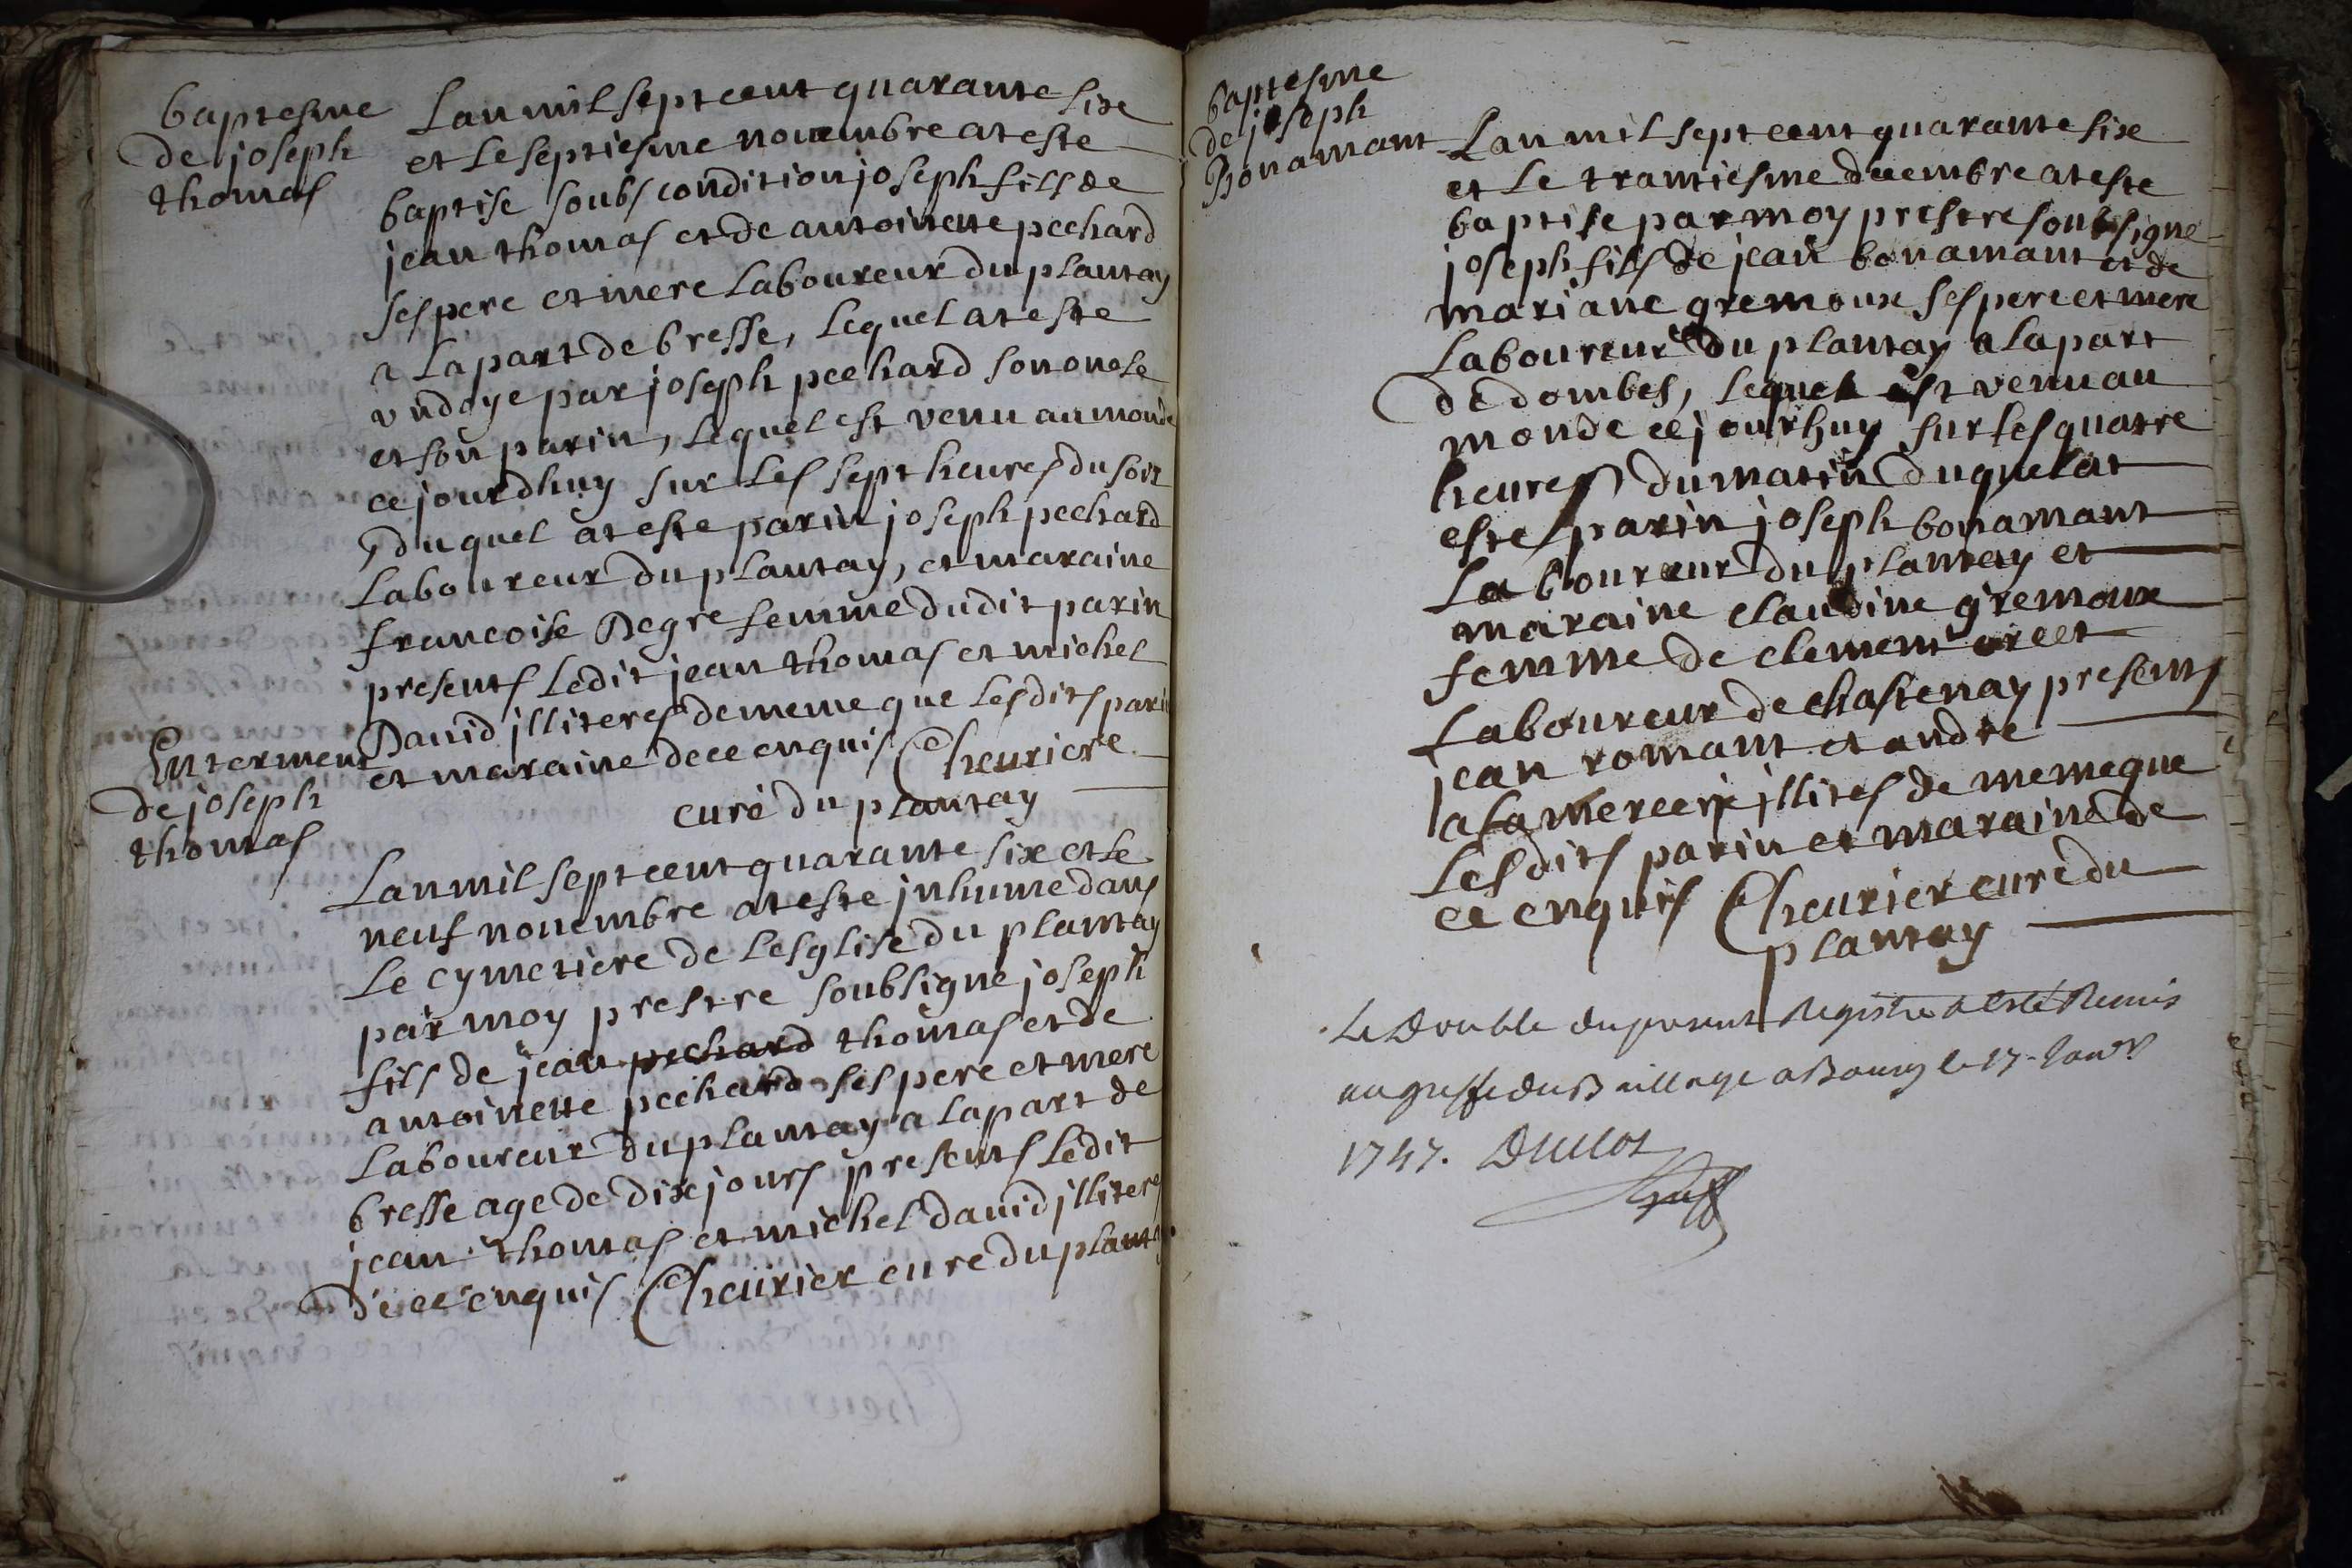 baptesme
de joseph
thomas
Lan mil sept cent quarante six
et le septiesme nouembre at este
baptise soubs condition joseph fils de
jean thomas et de antoinette pechard
ses pere et mere laboureur du plantay
a la part de bresse, lequel at este
vndoye par joseph pechard son oncle
et son parin, lequel est venu au monde
ce jourdhuy sur les sept heures du soir
duquel at este parin joseph pechard
laboureur du plantay, et maraine
francoise Degre femme dudit parin
presents ledit jean thomas et michel
Dauid jlliteres de meme que lesdits parin
et maraine de ce enquis Cheuriere
curé du plantay
Enterment
de joseph
thomas
Lan mil sept cent quarante six et le
neuf nouembre at este jnhume dans
le cymetiere de lesglise du plantay
par moy prestre soubsigne joseph
fils de jean pechard thomas et de
antoinette pechard ses pere et mere
laboureur du plantay a la part de
bresse age de dix jours presents ledit
jean thomas et michel dauid jlliteres
de ce enquis Cheurier cure du plantay
baptesme
de joseph
Bonamant
Lan mil sept cent quarante six
et le trantiesme decembre at este
baptise par moy prestre soubsigne
joseph fils de jean bonamant et de
mariane gremoux ses pere et mere
laboureur du plantay a la part
de dombes, lequel est venu au
monde ce jourhuy sur les quatre
heures du matin duquel at
este parin joseph bonamant
laboureur du plantay et
maraine claudine gremoux
femme de clement
laboureur de chastenay presents
jean romant et andre
jllites de meme que
lesdits parin et maraine de
ce enquis Cheurier curé du
plantay
Le Double du present Registre a esté Remis
au greffe du Baillage a Bourg le 17 Janvr
1747. Duclos
Greff